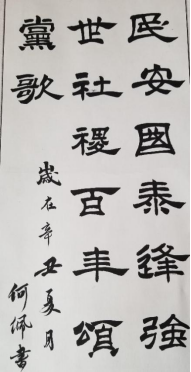 民安國泰逢強
世社禝百年頌
黨歌
歲在辛丑夏月
何佩書